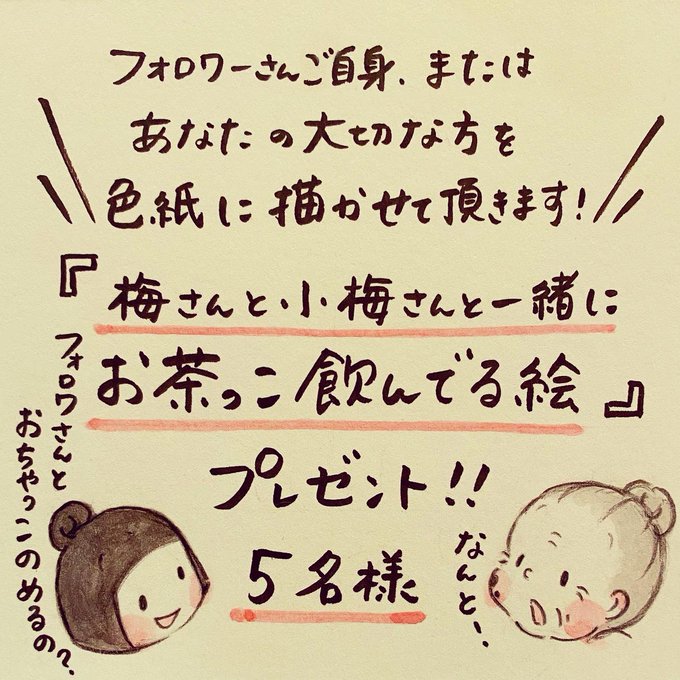 フォロワーさんご自身、または
あなたの大切な方を
色紙に描かせて頂きます!
『梅さんと小梅さんと一緒に
お茶っこ飲んでる絵』
プレゼント!!
5名様
フォロワさんと
おちゃっこのめるの?
なんと!